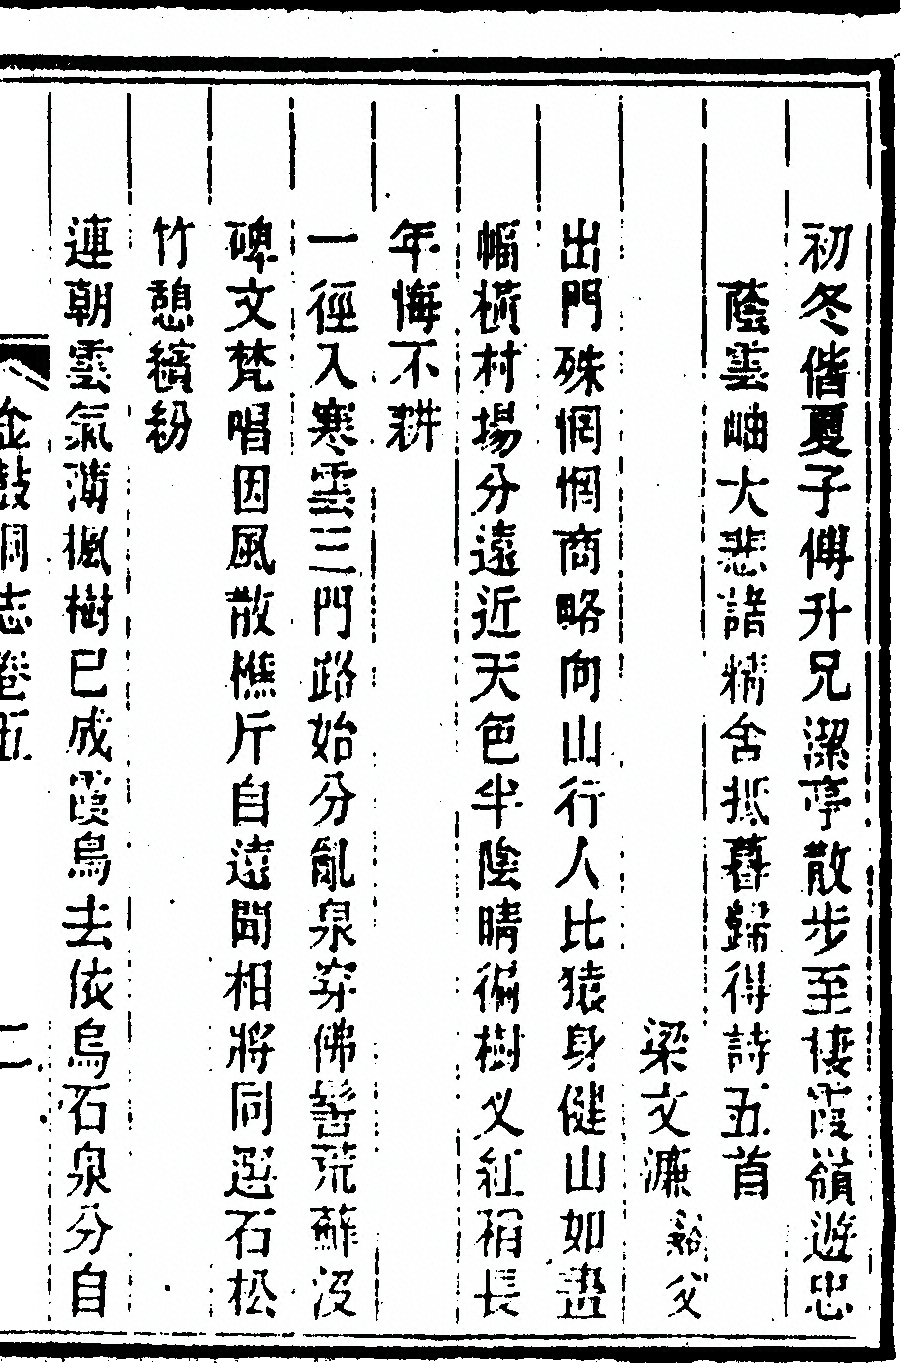 初冬偕夏子傅升兄潔亭散步至棲霞嶺遊忠
蔭雲岫大悲諸精舍抵暮歸得詩五首
梁文濂谿父
出門殊惘惘商略向山行人比猿身健山如畫
幅橫村場分遠近天色半陰晴徧樹义紅稍長
年悔不耕
一徑入寒雲三門路始分亂泉穿佛髻荒蘚沒
碑文梵唱因風散樵斤自遠聞相將同選石松
竹憩繽紛
連朝雲氣薄楓樹已成霞鳥去依烏石泉分自
金鼓洞志卷五
二